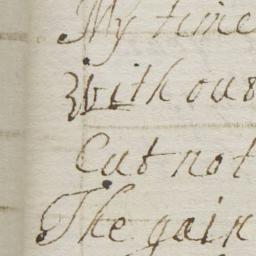 My time
With our
Cut not
The gain